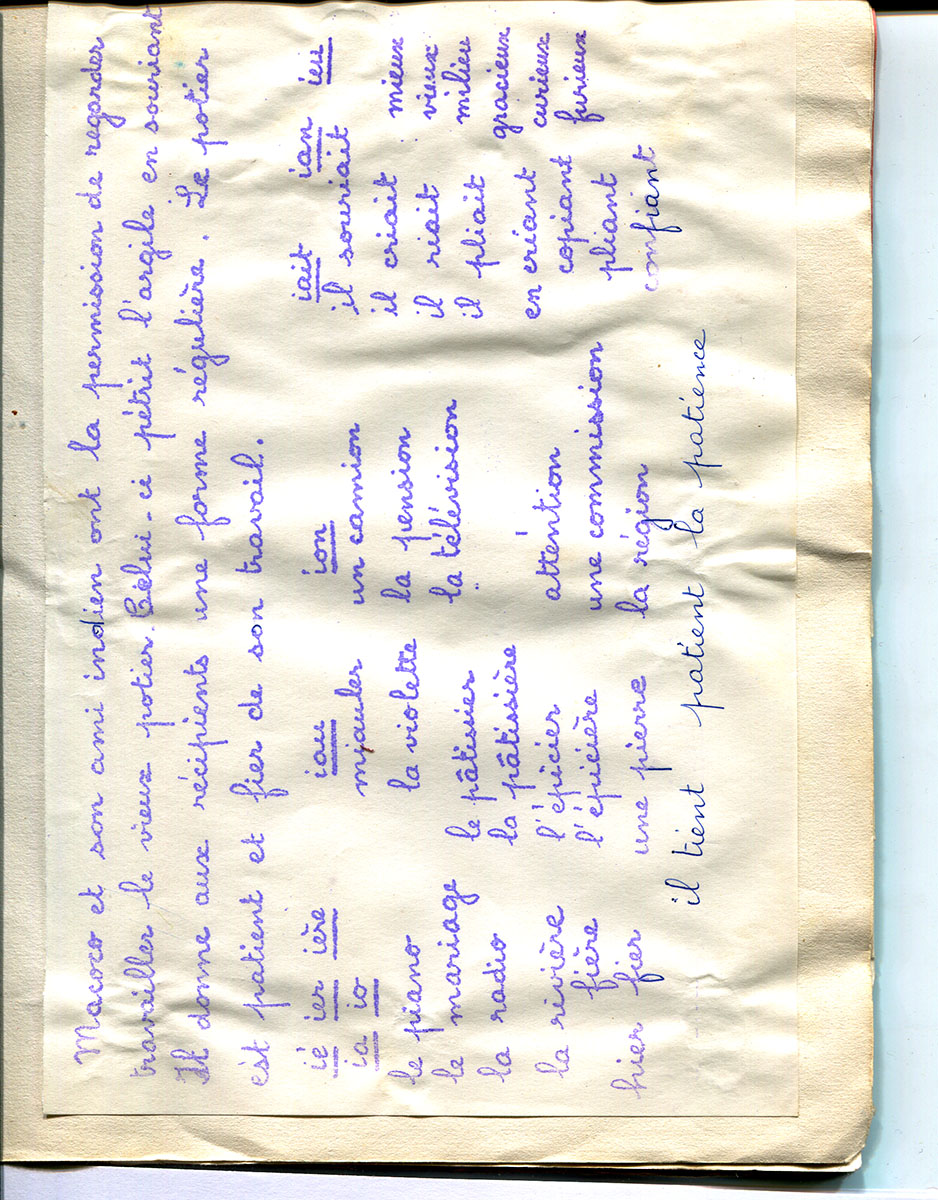 Macoco et son ami indien ont la permission de regarder
travailler le vieux potier. Celui-ci pétrit l'argile en souriant
Il donne aux récipients une forme régulière. Le potier
est patient et fier de son travail.
ié ier ière iau ion iait ian ieu
ia io miauler un camion il souriait
le piano la violette la pension il criait mieux
le mariage la télévision il riait vieux
la radio le pâtissier il pliait milieu
la pâtissière gracieux
la rivière l'épicier attention en criant curieux
fière l'épicière une commission copiant furieux
hier fier une pierre la région pliant
confiant
il tient patient la patience